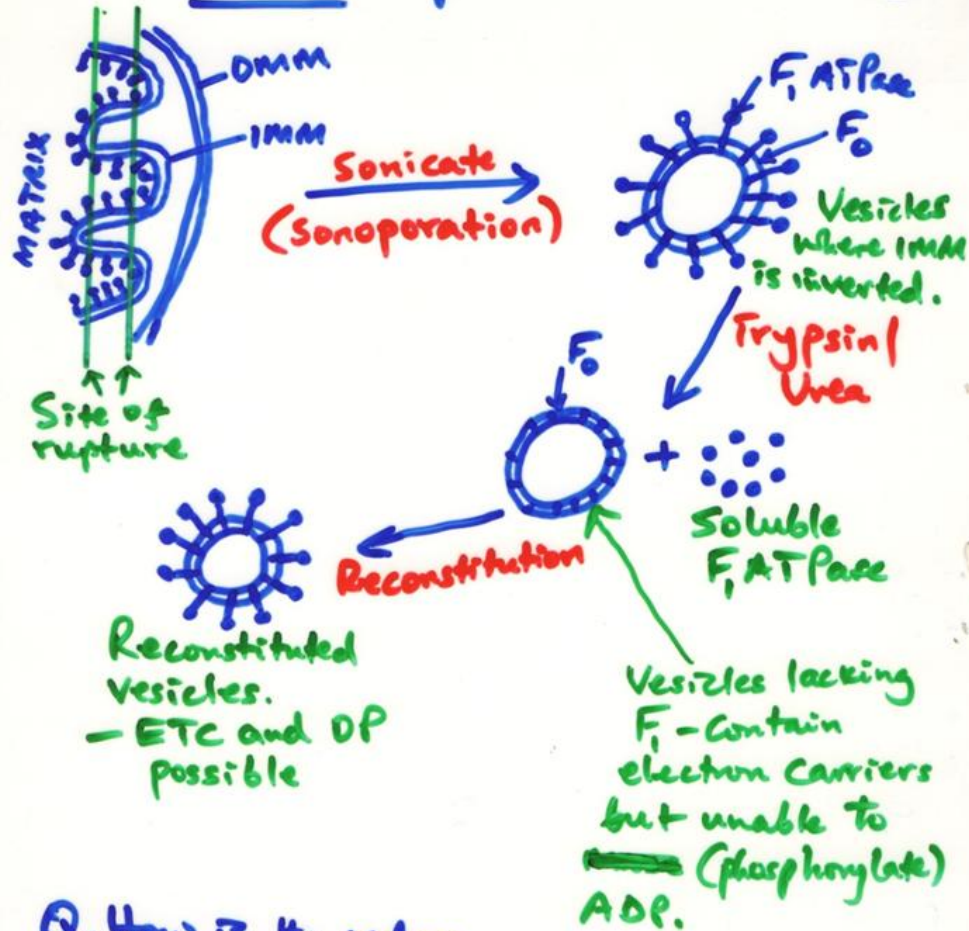 OMM
IMM
MATRIX
Sonicate
(Sonoporation)
F₁ ATPase
F₀
Vesicles
where IMM
is inverted.
Trypsin/
Urea
Site of
rupture
F₀
+
Soluble
F₁ ATPase
Reconstitution
Reconstituted
vesicles.
- ETC and OP
possible
Vesicles lacking
F₁ - Contain
electron carriers
but unable to
(phosphorylate)
ADP.
Q. How is the